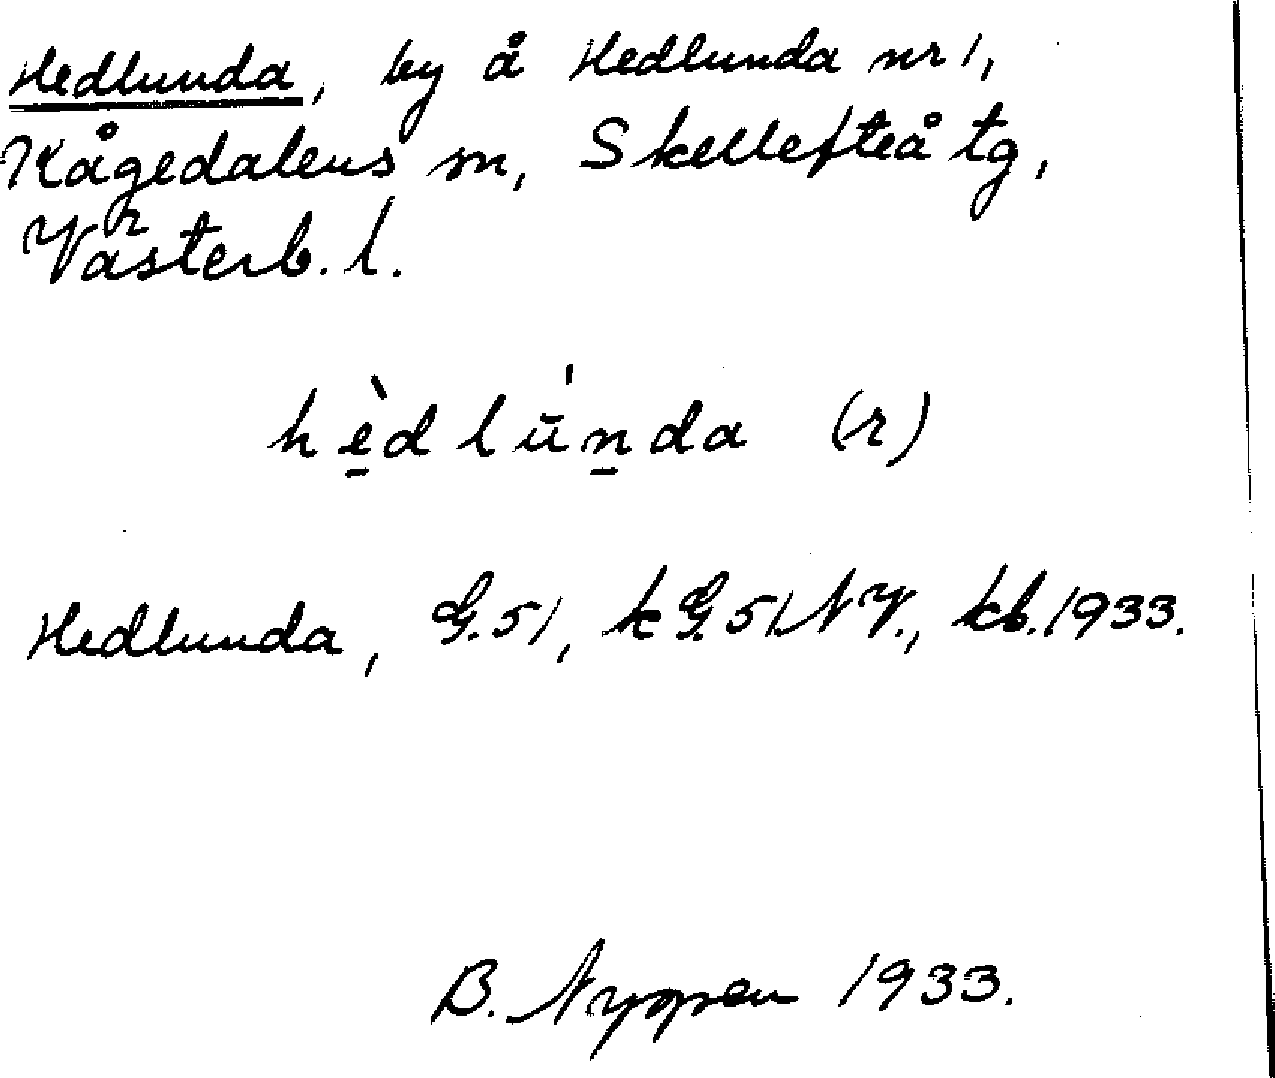 Hedlunda, by å Hedlunda nr 1,
Kågedalens sn, Skellefteå tg,
Västerb. l.
hè̱dlū́ṉda (r)
Hedlunda, G. 51, k G. 51 NV., kb. 1933.
B. 1933.